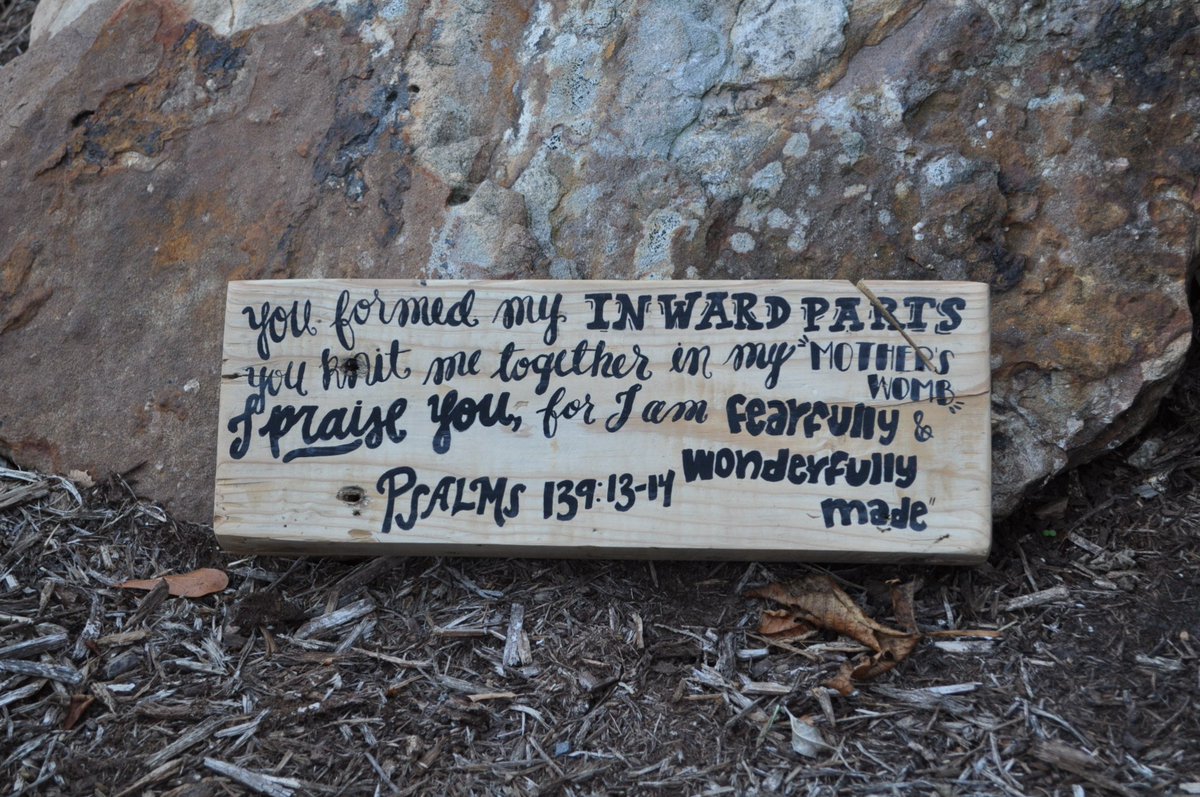 you formed my INWARD PARTS
you knit me together in my "MOTHER'S
WOMB"
I praise you, for I am fearfully &
wonderfully
made"
PSALMS 139:13-14